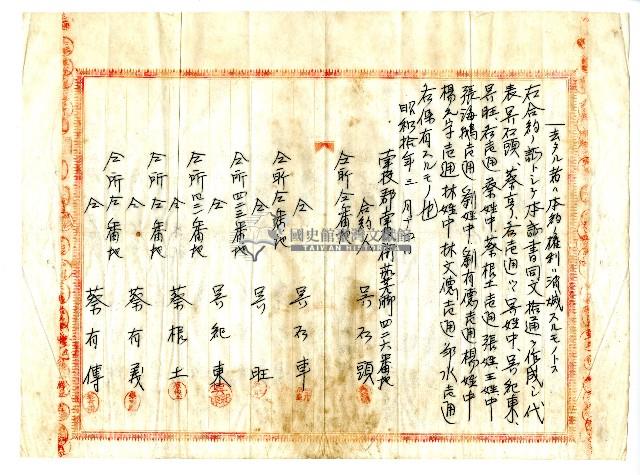 一 去タル者ハ本約ノ權利ハ消滅スルモノトス
右合約ノ証トシテ本証書同文拾通ヲ作成シ代
表吳石頭、蔡亨、右壱通ツヽ吳姓中、吳紀東、
吳旺右壱通 蔡姓中 蔡根土壱通 張姓、王姓中
張海 壱通 劉姓中、劉有 壱通 楊姓中
楊元守壱通 林姓中 林文德壱通 邱水壱通
右保有スルモノ也
昭和拾年三月 日
南投郡南投街 四二六番地
合約 吳石頭
仝所仝番地
仝 吳石車
仝所仝番地
仝 吳旺
仝所四二三番地
仝 吳紀東
仝所四二 番地
仝 蔡根土
仝所仝番地
仝 蔡有義
仝所仝番地
仝 蔡有傳
國史館臺灣文獻館
TAIWAN HISTORICA